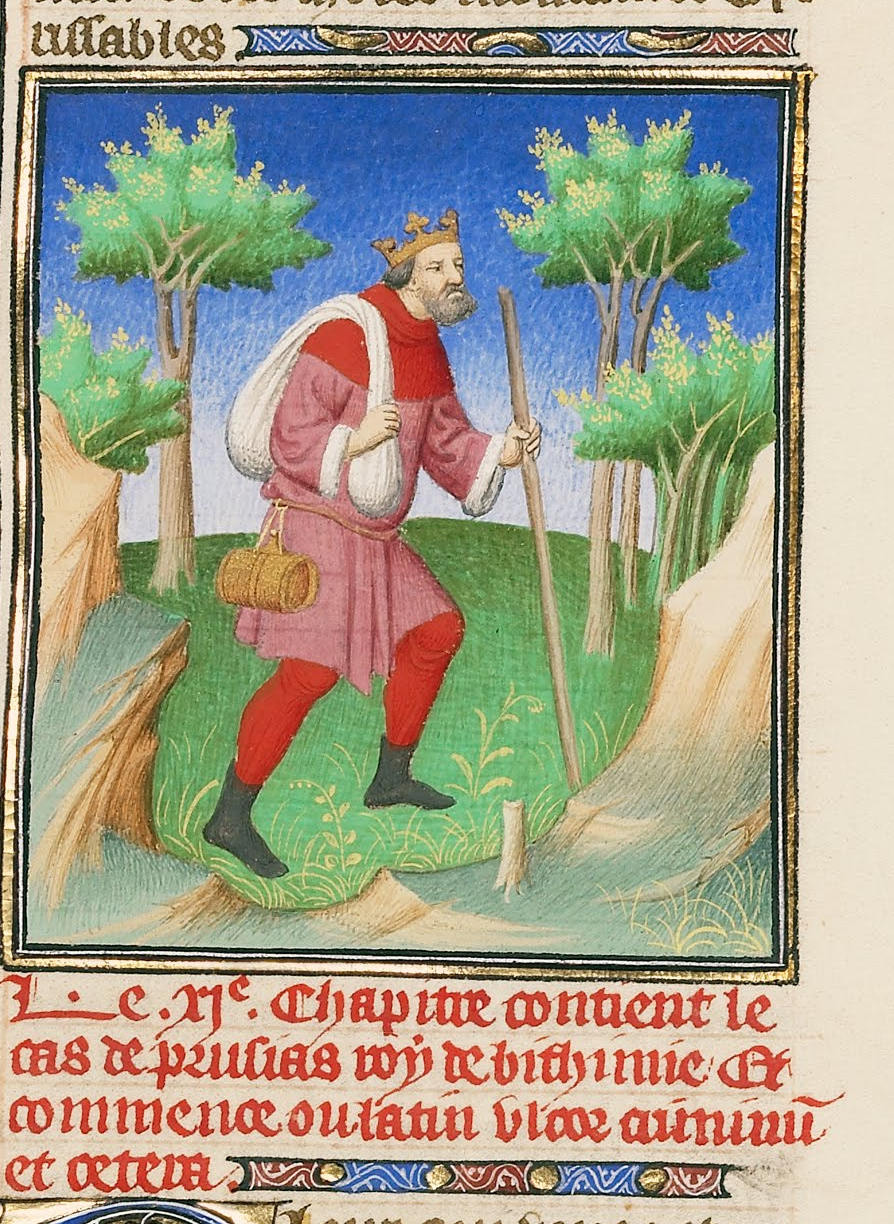 ussables
Le .xje. Chapitre contient le
cas de prusias roÿ de bithinie Et
commence ou latin Vltor criminū
et cetera.